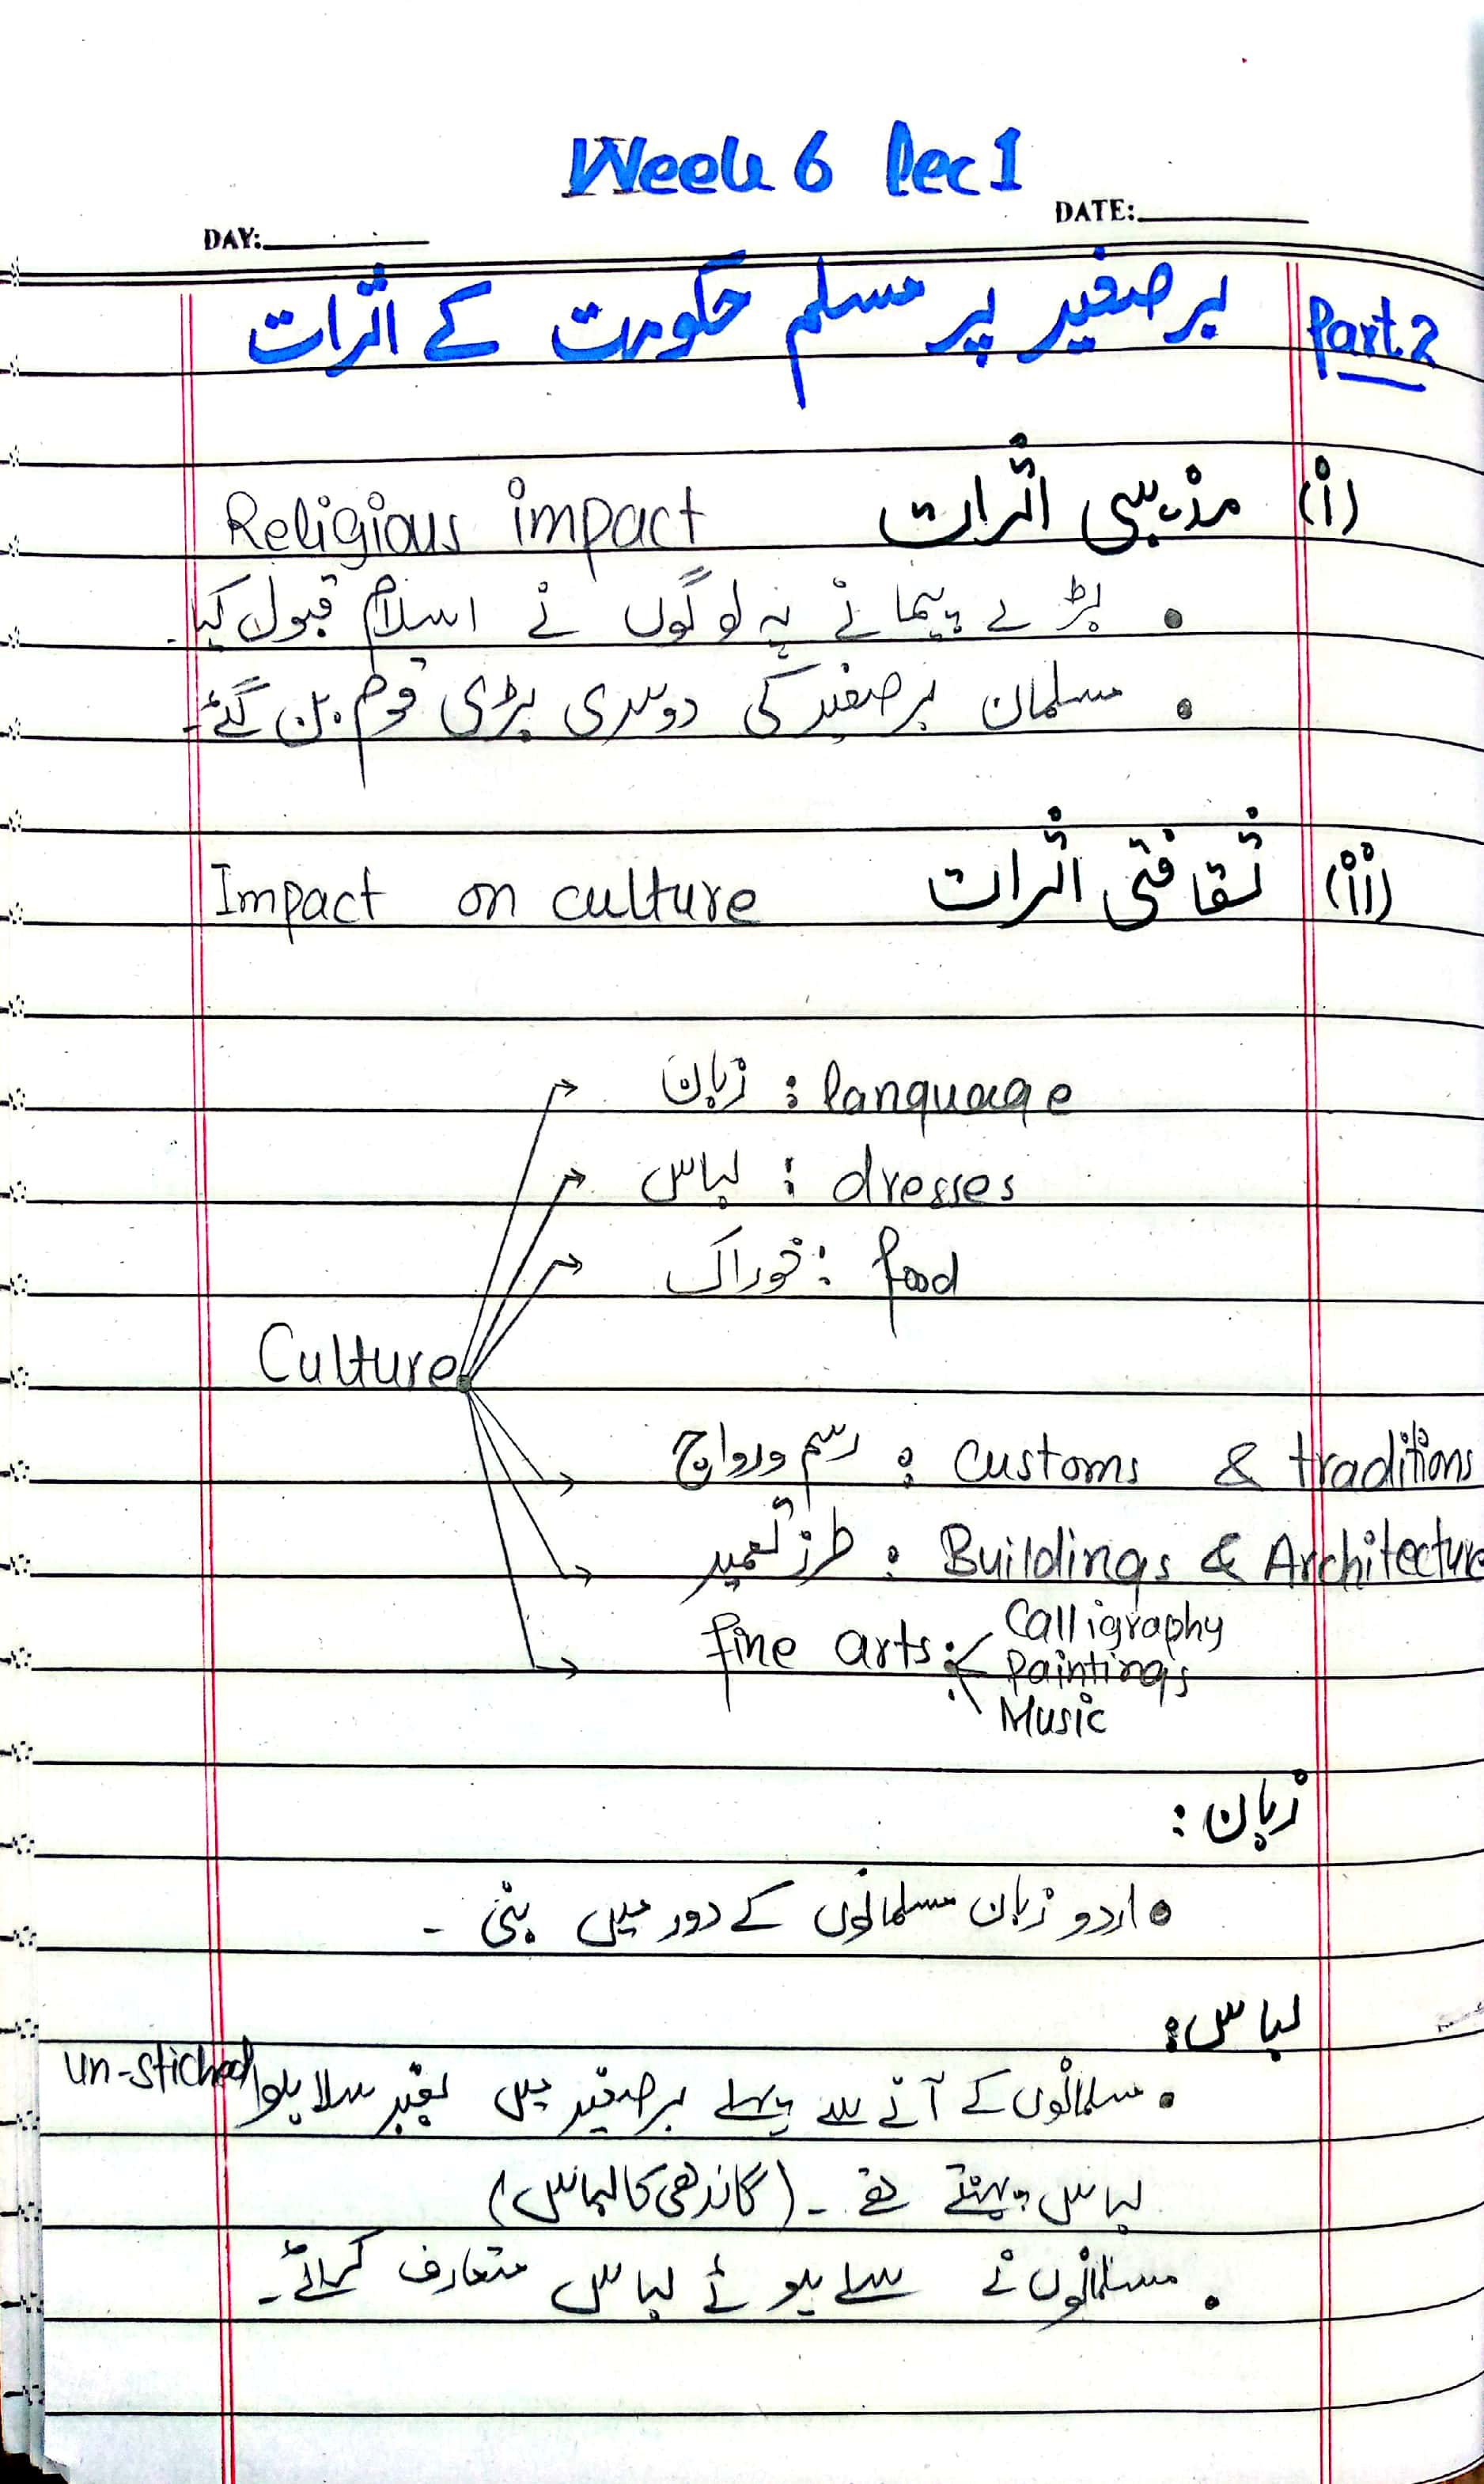 Week 6 Lec 1
DAY:
DATE:
Part 2 برصغیر پر مسلم حکومت کے اثرات
(i) مذہبی اثرات Religious impact
• بڑے پیمانے پہ لوگوں نے اسلام قبول کیا۔
• مسلمان برصغیر کی دوسری بڑی قوم بن گئے۔
(ii) ثقافتی اثرات Impact on culture
زبان : language
لباس : dresses
خوراک : food
Culture
رسم ورواج : Customs & traditions
طرز تعمیر : Buildings & Architecture
fine arts :
Calligraphy
Paintings
Music
زبان :
• اردو زبان مسلمانوں کے دور میں بنی ۔
لباس :
• مسلمانوں کے آنے سے پہلے برصغیر میں بغیر سلا ہوا un-stiched
لباس پہنتے تھے ۔ (گاندھی کا لباس)
• مسلمانوں نے سلے ہوئے لباس متعارف کرائے ۔